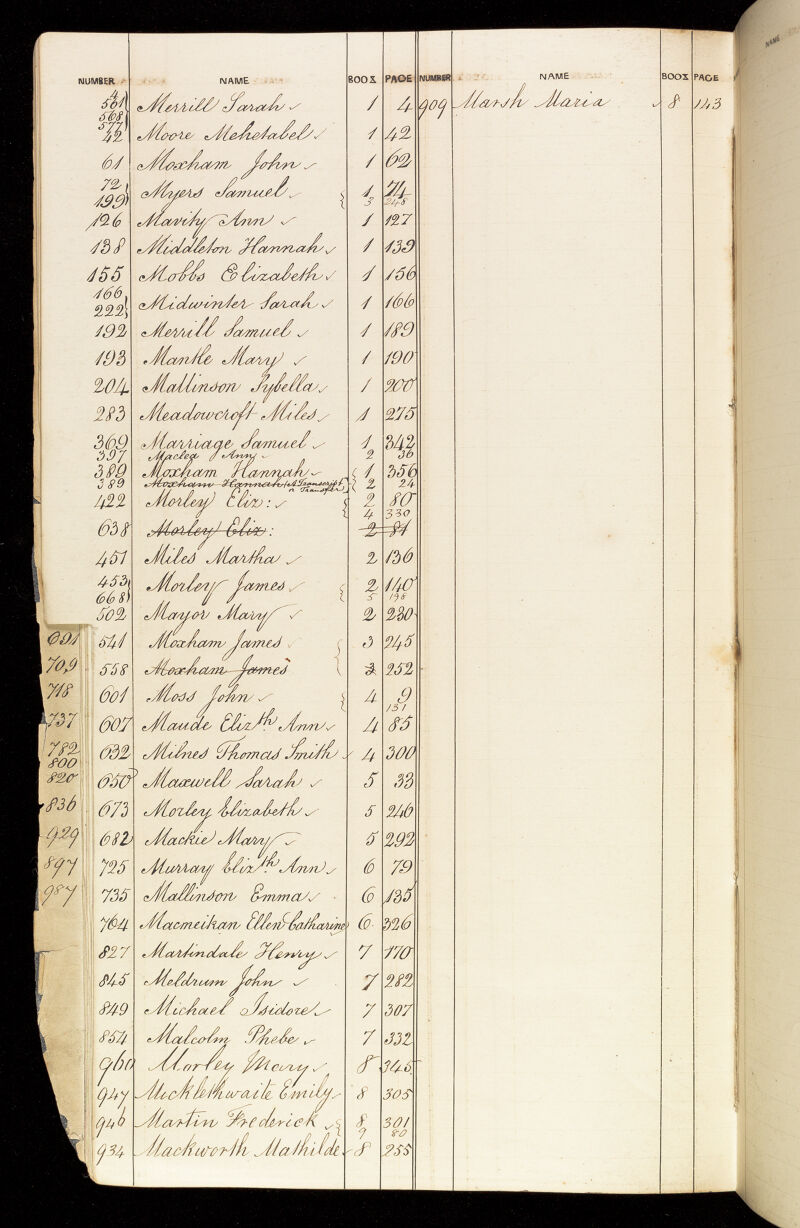 NUMBER NAME BOOK PAGE NUMBER NAME BOOK PAGE
4
561 Merrill Sarah 1 4 909 Marsh Maria 8 143
568
577
42 Moore Mehetabel 1 42
61 Moxham John 1 62
72
199 Myers Samuel 1 74
3 248
126 Mavity Ann 1 127
138 Middleton Hannah 1 139
155 Mobbs Elizabeth 1 156
166
222 Midwinter Sarah 1 166
192 Merrill Samuel 1 189
193 Mantle Mary 1 190
204 Mallinson Sybella 1 200
283 Meadowcroft Miles 1 275
369 Marriage Samuel 1 342
397 Maclea Ann 2 36
389 Moxham Hannah 1 356
389 Moxham Hannah (A Transcript 2 24
Transfer)
422 Morley Eliz: 2 80
4 330
638 Morley Eliz: 2 81
451 Miles Martha 2 136
453
668 Morley James 2 140
5 198
502 Mayor Mary 2 230
691 541 Moxham James 3 245
709 558 Moxham James 3 252
718 601 Moss John 4 9
131
737 607 Maude Elizth Ann 4 85
782 632 Milnes Thomas Smith 4 300
800
820 650 Maxwell Sarah 5 33
836 673 Morley Elizabeth 5 246
929 682 Mackie Mary 5 292
897 725 Murray Elizth Ann 6 79
987 735 Mallinson Emma 6 135
764 Macmeikan Ellen Catharine 6 326
827 Martindale Henry 7 170
845 Meldrum John 7 282
849 Michael Isidore 7 307
854 Malcolm Phebe 7 332
960 Morley Mary 8 345
947 Micklethwaite Emily 8 305
946 Martin Frederick 8 301
9 80
934 Mackworth Mathilde 8 255
NAME